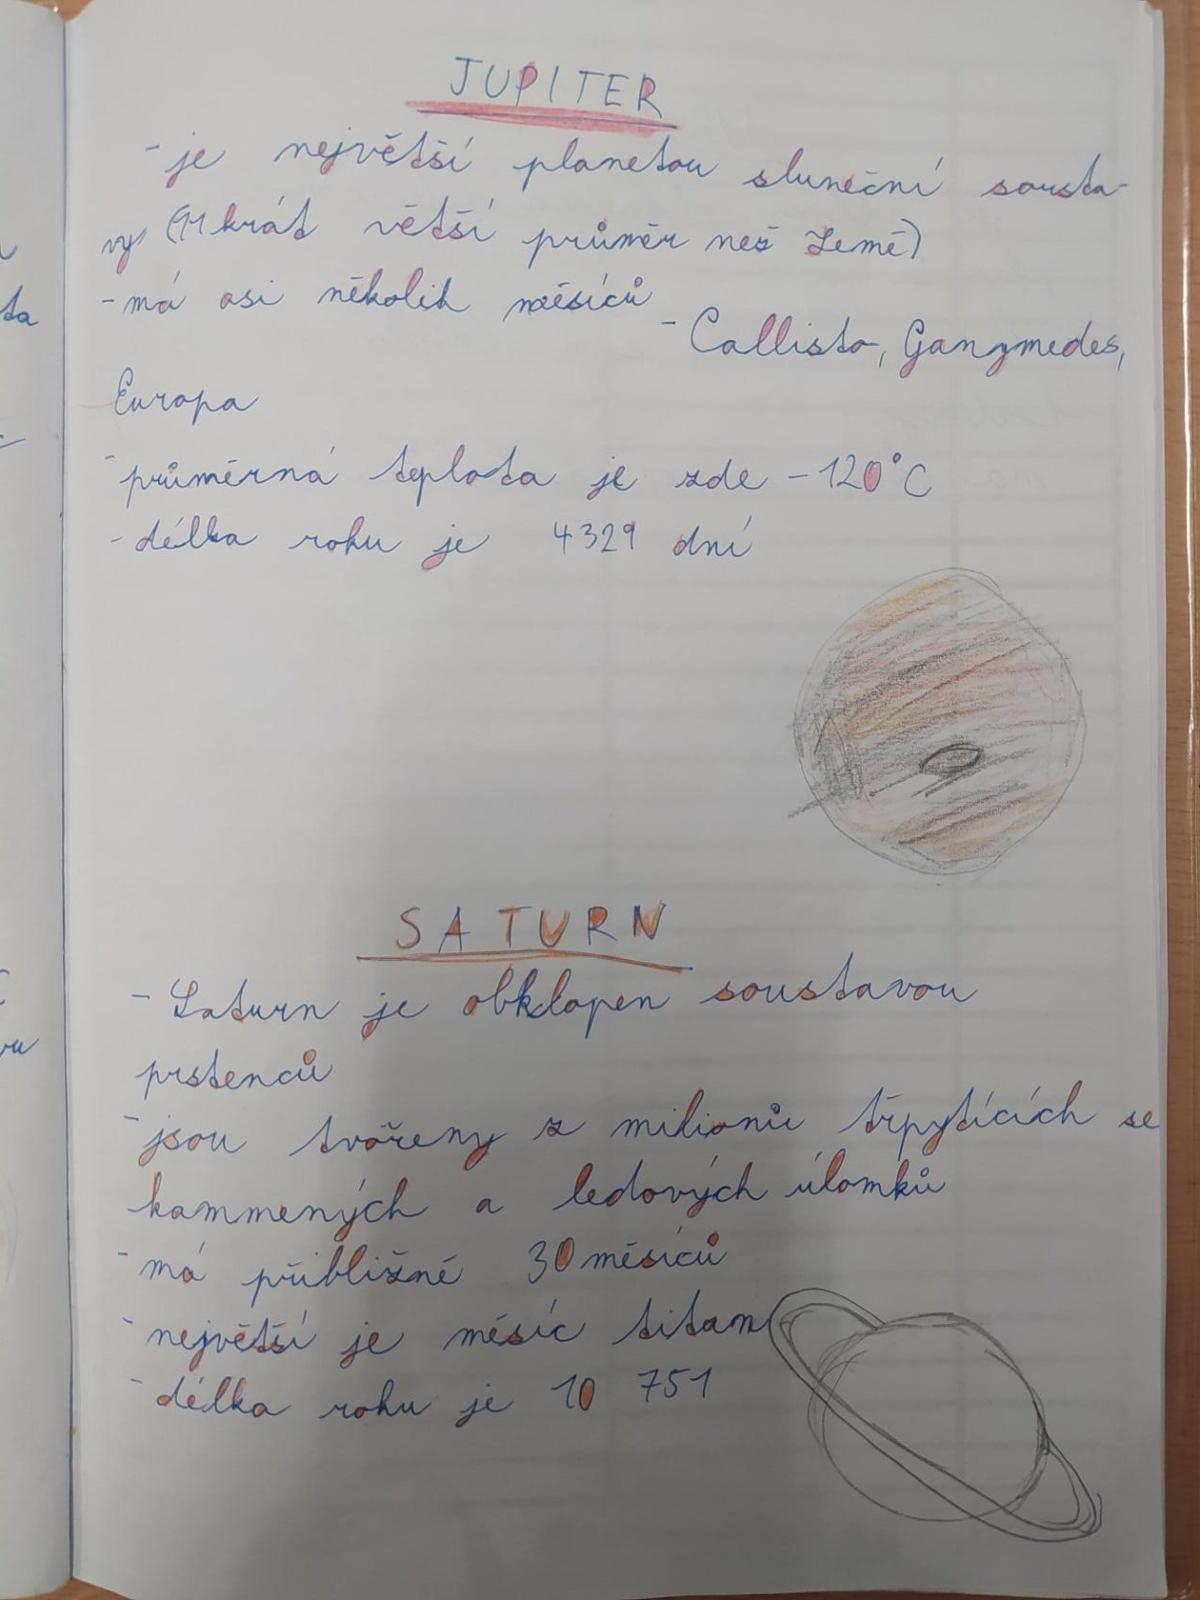 JUPITER
- je největší planetou sluneční sousta-
vy (11 krát větší průměr než Země)
- má asi několik měsíců
- Callisto, Ganymedes,
Europa
- průměrná teplota je zde -120°C
- délka roku je 4329 dní
SATURN
- Saturn je obklopen soustavou
prstenců
- jsou tvořeny z milionů třpytících se
kammených a ledových úlomků
- má přibližně 30 měsíců
- největší je měsíc titan
- délka roku je 10 751